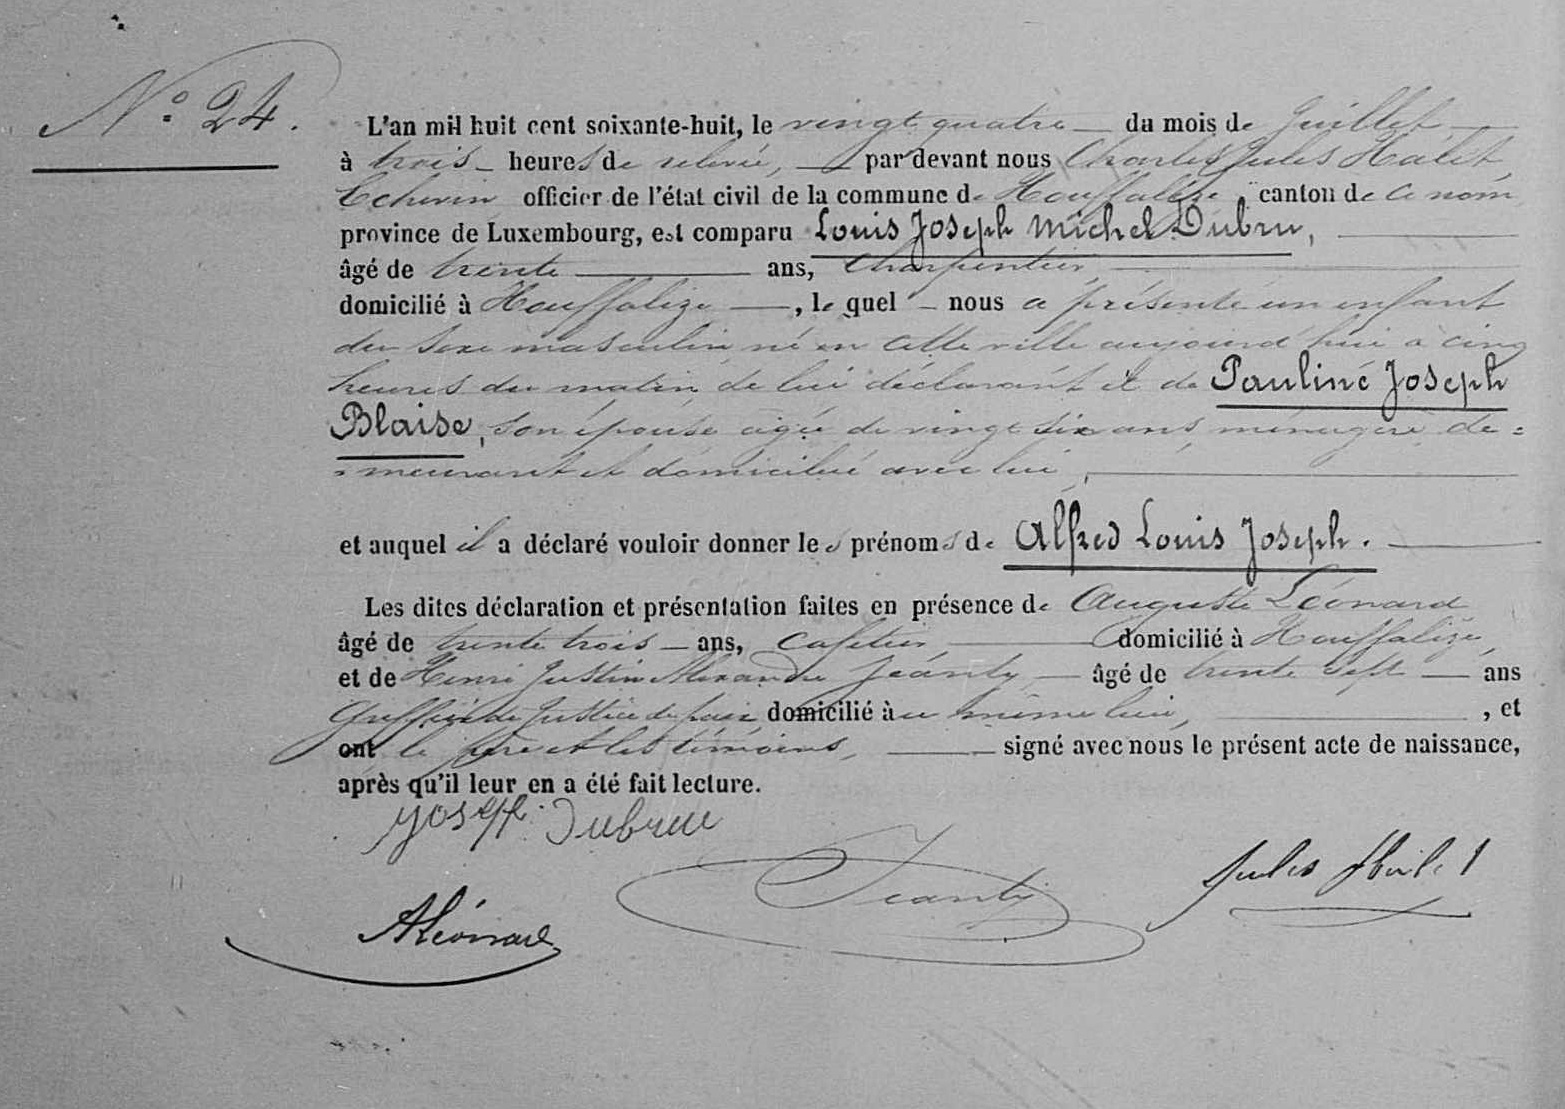 N° 24.
L'an mil huit cent soixante-huit, le vingt quatre du mois de Juillet
à trois heures de relevée, par devant nous Charles Jules Halet
Echevin officier de l'état civil de la commune de Houffalize canton de ce nom
province de Luxembourg, est comparu Louis Joseph Michel Dubru,
âgé de trente ans, Charpentier,
domicilié à Houffalize, le quel nous a présenté un enfant
du sexe masculin né en cette ville aujourd'hui à cinq
heures du matin de lui déclarant et de Pauline Joseph
Blaise, son épouse agée de vingt six ans, ménagère, de=
=meurant et domicilié avec lui,
et auquel il a déclaré vouloir donner les prénoms de Alfred Louis Joseph.
Les dites déclaration et présentation faites en présence de Auguste Léonard
âgé de trente trois ans, cafetier, domicilié à Houffalize,
et de Henri Justin Alexandre Jeanty âgé de trente sept ans
Greffier de Justice de paix domicilié au même lieu, , et
ont le père et les témoins, signé avec nous le présent acte de naissance,
après qu'il leur en a été fait lecture.
Joseph Dubru
Jeanty
Jules
ALéonard